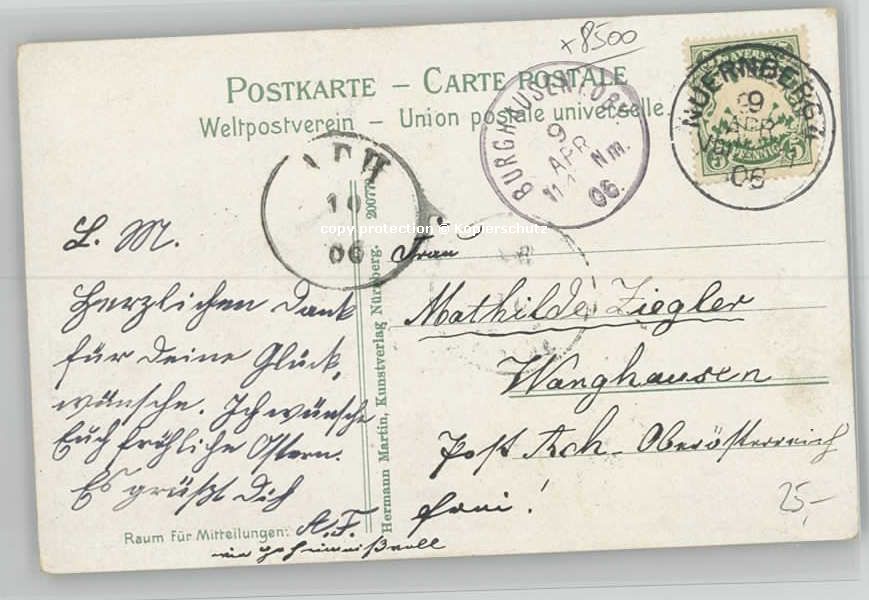 x8500
POSTKARTE – CARTE POSTALE
Weltpostverein – Union postale universelle.
NUERNBERG 2
9
APR
06
PFENNIG
BURGHAUSEN
9
APR
Nm.
06.
ACH
10
06
copy protection © Kopierschutz
L. M.
Herzlichen Dank
für Deine Glück,
wünsche. Ich wünsche
Euch fröhliche Ostern.
Es grüßt Dich
A.F.
wie geheimnißvoll
Raum für Mitteilungen:
Hermann Martin, Kunstverlag Nürnberg. 20077
Frau
Mathilde Ziegler
Wanghausen
Post Ach. Oberösterreich
frei!
25,-